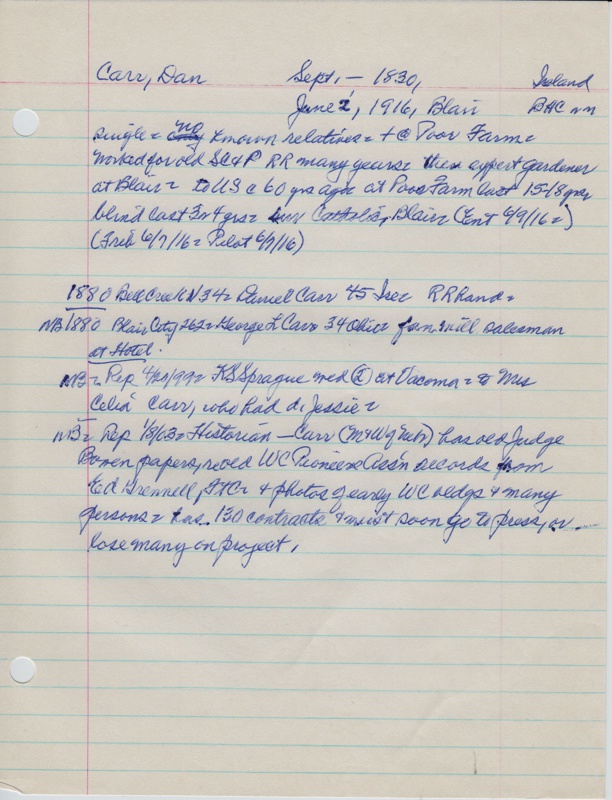 Carr, Dan Sept. – 1830, Ireland
June 2, 1916, Blair BHC nn
single = no known relatives = + @ Poor Farm =
worked for old SC&P RR many years = then expert gardener
at Blair = to US c 60 yrs ago = at Poor Farm last 15-18 yrs
blind last 3-4 yrs = Catholic, Blair (Ent 6/9/16 =)
(Trib 6/7/16 = Pilot 6/7/16)
1880 Bell Creek N 34 = Daniel Carr 45 Ire = RR hand =
NB 1880 Blair City 262 = George L Carr 34 Ohio = fan mill salesman
at Hotel.
NB = Rep 4/20/99 = KS Sprague med (2) at Tacoma = to Mrs
Celia Carr, who had d. Jessie =
NB = Rep 1/8/03 = Historian – Carr (M & W of Neb) has old Judge
Bowen papers, recvd WC Pioneer Ass'n records from
Ed Grennell, & photos of early WC bldgs & many
persons = has 130 contracts & must soon go to press, or
lose many on project.